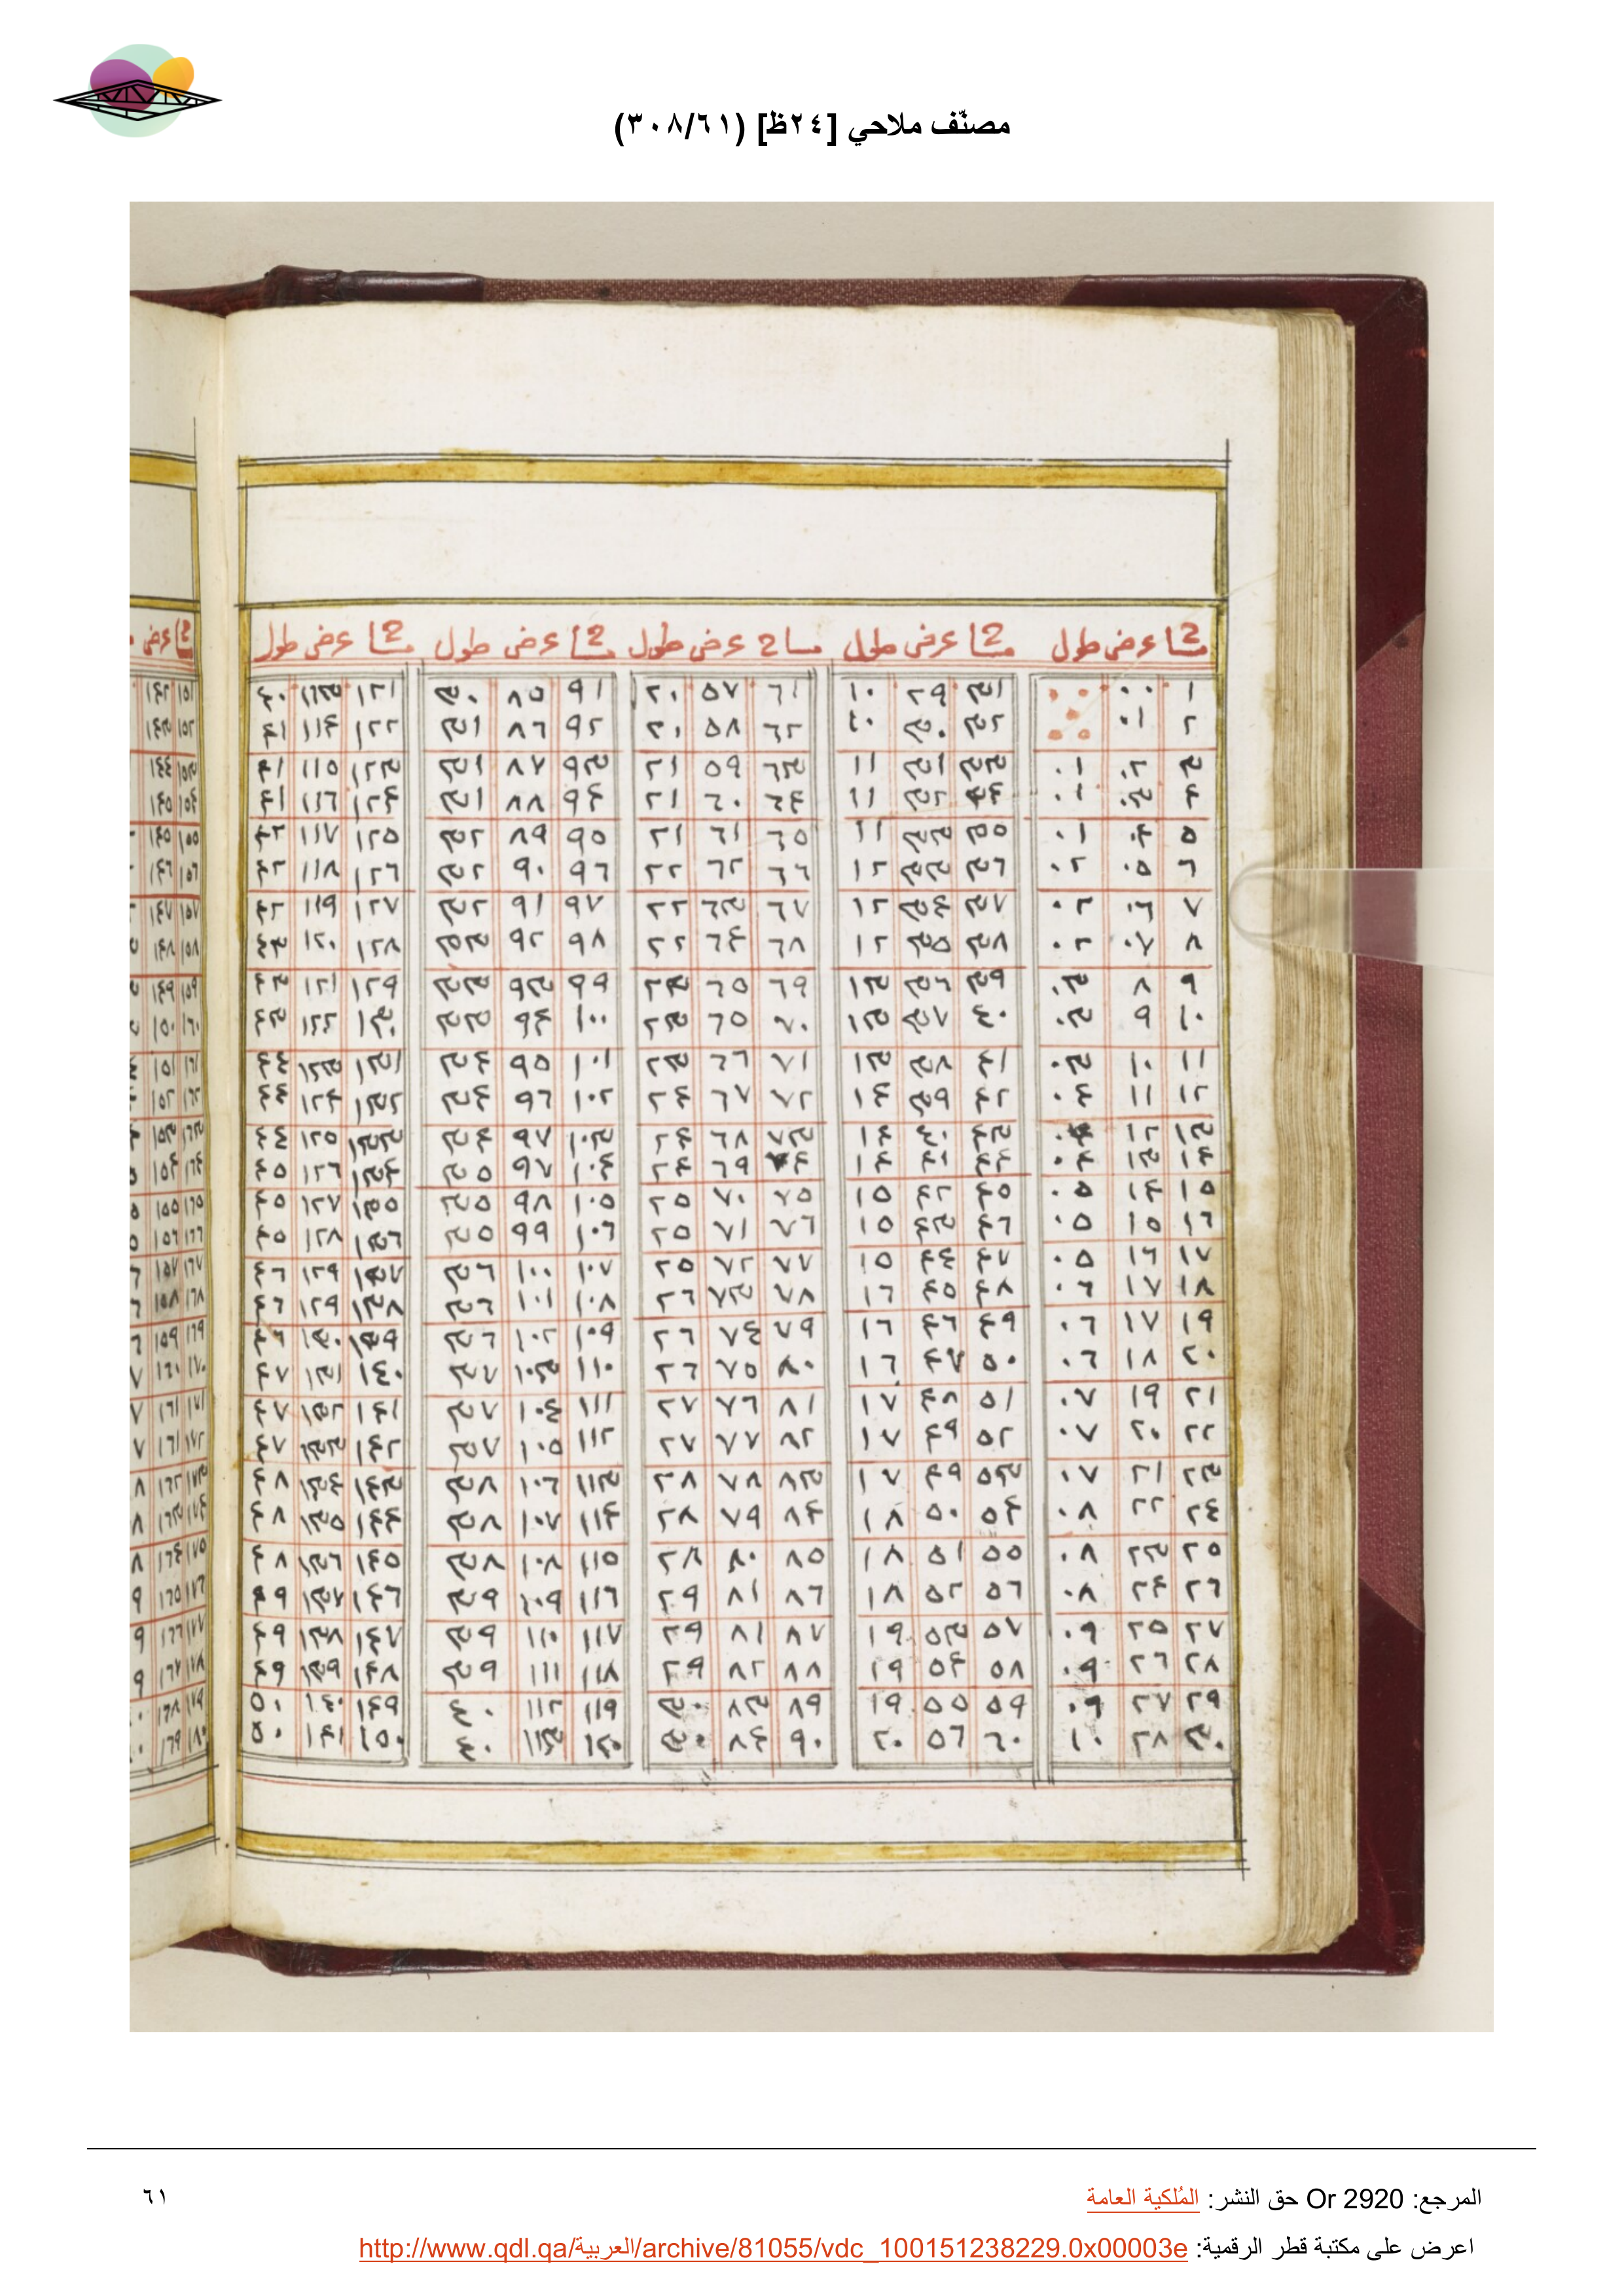 مصنّف ملاحي [٢٤ظ] (٣٠٨/٦١)
مساح عرض طول مساح عرض طول مساح عرض طول مساح عرض طول مساح عرض طول مساح عرض
١ ٠٠ ٠٠ ٣١ ٢٩ ١٠ ٦١ ٥٧ ٢٠ ٩١ ٨٥ ٣٠ ١٢١ ١١٣ ٤٠ ١٥١ ١٤٢
٢ ٠١ ٠٠ ٣٢ ٣٠ ١٠ ٦٢ ٥٨ ٢٠ ٩٢ ٨٦ ٣١ ١٢٢ ١١٤ ٤١ ١٥٢ ١٤٣
٣ ٠٢ ٠١ ٣٣ ٣١ ١١ ٦٣ ٥٩ ٢١ ٩٣ ٨٧ ٣١ ١٢٣ ١١٥ ٤١ ١٥٣ ١٤٤
٤ ٠٣ ٠١ ٣٤ ٣٢ ١١ ٦٤ ٦٠ ٢١ ٩٤ ٨٨ ٣١ ١٢٤ ١١٦ ٤١ ١٥٤ ١٤٥
٥ ٠٤ ٠١ ٣٥ ٣٣ ١١ ٦٥ ٦١ ٢١ ٩٥ ٨٩ ٣٢ ١٢٥ ١١٧ ٤٢ ١٥٥ ١٤٥
٦ ٠٥ ٠٢ ٣٦ ٣٣ ١٢ ٦٦ ٦٢ ٢٢ ٩٦ ٩٠ ٣٢ ١٢٦ ١١٨ ٤٢ ١٥٦ ١٤٦
٧ ٠٦ ٠٢ ٣٧ ٣٤ ١٢ ٦٧ ٦٣ ٢٢ ٩٧ ٩١ ٣٢ ١٢٧ ١١٩ ٤٢ ١٥٧ ١٤٧
٨ ٠٧ ٠٢ ٣٨ ٣٥ ١٢ ٦٨ ٦٤ ٢٢ ٩٨ ٩٢ ٣٣ ١٢٨ ١٢٠ ٤٣ ١٥٨ ١٤٨
٩ ٨ ٠٣ ٣٩ ٣٦ ١٣ ٦٩ ٦٥ ٢٣ ٩٩ ٩٣ ٣٣ ١٢٩ ١٢١ ٤٣ ١٥٩ ١٤٩
١٠ ٩ ٠٣ ٤٠ ٣٧ ١٣ ٧٠ ٦٥ ٢٣ ١٠٠ ٩٤ ٣٣ ١٣٠ ١٢٢ ٤٣ ١٦٠ ١٥٠
١١ ١٠ ٠٣ ٤١ ٣٨ ١٣ ٧١ ٦٦ ٢٣ ١٠١ ٩٥ ٣٤ ١٣١ ١٢٣ ٤٤ ١٦١ ١٥١
١٢ ١١ ٠٤ ٤٢ ٣٩ ١٤ ٧٢ ٦٧ ٢٤ ١٠٢ ٩٦ ٣٤ ١٣٢ ١٢٤ ٤٤ ١٦٢ ١٥٢
١٣ ١٢ ٠٤ ٤٣ ٤٠ ١٤ ٧٣ ٦٨ ٢٤ ١٠٣ ٩٧ ٣٤ ١٣٣ ١٢٥ ٤٤ ١٦٣ ١٥٣
١٤ ١٣ ٠٤ ٤٤ ٤١ ١٤ ٧٤ ٦٩ ٢٤ ١٠٤ ٩٧ ٣٥ ١٣٤ ١٢٦ ٤٥ ١٦٤ ١٥٤
١٥ ١٤ ٠٥ ٤٥ ٤٢ ١٥ ٧٥ ٧٠ ٢٥ ١٠٥ ٩٨ ٣٥ ١٣٥ ١٢٧ ٤٥ ١٦٥ ١٥٥
١٦ ١٥ ٠٥ ٤٦ ٤٣ ١٥ ٧٦ ٧١ ٢٥ ١٠٦ ٩٩ ٣٥ ١٣٦ ١٢٨ ٤٥ ١٦٦ ١٥٦
١٧ ١٦ ٠٥ ٤٧ ٤٤ ١٥ ٧٧ ٧٢ ٢٥ ١٠٧ ١٠٠ ٣٦ ١٣٧ ١٢٩ ٤٦ ١٦٧ ١٥٧
١٨ ١٧ ٠٦ ٤٨ ٤٥ ١٦ ٧٨ ٧٣ ٢٦ ١٠٨ ١٠١ ٣٦ ١٣٨ ١٢٩ ٤٦ ١٦٨ ١٥٨
١٩ ١٧ ٠٦ ٤٩ ٤٦ ١٦ ٧٩ ٧٤ ٢٦ ١٠٩ ١٠٢ ٣٦ ١٣٩ ١٣٠ ٤٦ ١٦٩ ١٥٩
٢٠ ١٨ ٠٦ ٥٠ ٤٧ ١٦ ٨٠ ٧٥ ٢٦ ١١٠ ١٠٣ ٣٧ ١٤٠ ١٣١ ٤٧ ١٧٠ ١٦٠
٢١ ١٩ ٠٧ ٥١ ٤٨ ١٧ ٨١ ٧٦ ٢٧ ١١١ ١٠٤ ٣٧ ١٤١ ١٣٢ ٤٧ ١٧١ ١٦١
٢٢ ٢٠ ٠٧ ٥٢ ٤٩ ١٧ ٨٢ ٧٧ ٢٧ ١١٢ ١٠٥ ٣٧ ١٤٢ ١٣٣ ٤٧ ١٧٢ ١٦١
٢٣ ٢١ ٠٧ ٥٣ ٤٩ ١٧ ٨٣ ٧٨ ٢٨ ١١٣ ١٠٦ ٣٨ ١٤٣ ١٣٤ ٤٨ ١٧٣ ١٦٢
٢٤ ٢٢ ٠٨ ٥٤ ٥٠ ١٨ ٨٤ ٧٩ ٢٨ ١١٤ ١٠٧ ٣٨ ١٤٤ ١٣٥ ٤٨ ١٧٤ ١٦٣
٢٥ ٢٣ ٠٨ ٥٥ ٥١ ١٨ ٨٥ ٨٠ ٢٨ ١١٥ ١٠٨ ٣٨ ١٤٥ ١٣٦ ٤٨ ١٧٥ ١٦٤
٢٦ ٢٤ ٠٨ ٥٦ ٥٢ ١٨ ٨٦ ٨١ ٢٩ ١١٦ ١٠٩ ٣٩ ١٤٦ ١٣٧ ٤٩ ١٧٦ ١٦٥
٢٧ ٢٥ ٠٩ ٥٧ ٥٣ ١٩ ٨٧ ٨١ ٢٩ ١١٧ ١١٠ ٣٩ ١٤٧ ١٣٨ ٤٩ ١٧٧ ١٦٦
٢٨ ٢٦ ٠٩ ٥٨ ٥٤ ١٩ ٨٨ ٨٢ ٢٩ ١١٨ ١١١ ٣٩ ١٤٨ ١٣٩ ٤٩ ١٧٨ ١٦٧
٢٩ ٢٧ ٠٩ ٥٩ ٥٥ ١٩ ٨٩ ٨٣ ٣٠ ١١٩ ١١٢ ٤٠ ١٤٩ ١٤٠ ٥٠ ١٧٩ ١٦٨
٣٠ ٢٨ ١٠ ٦٠ ٥٦ ٢٠ ٩٠ ٨٤ ٣٠ ١٢٠ ١١٣ ٤٠ ١٥٠ ١٤١ ٥٠ ١٨٠ ١٦٩
المرجع: Or 2920 حق النشر: المُلكية العامة ٦١
اعرض على مكتبة قطر الرقمية: http://www.qdl.qa/العربية/archive/81055/vdc_100151238229.0x00003e